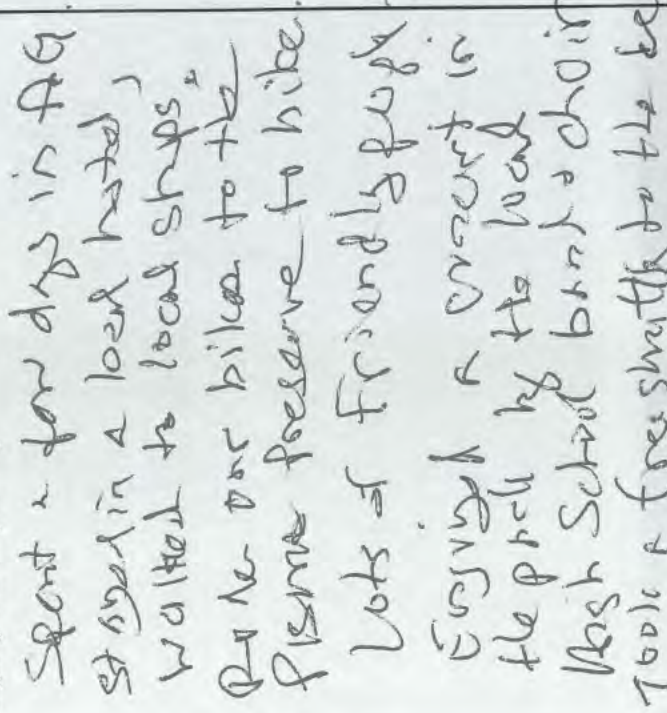 Spent a few days in AG
stayed in a local hotel,
walked to local shops.
Rode our bikes to the
Pismo Preserve to hike.
Lots of Friendly people
Enjoyed a concert in
the park by the local
High School band & choir
Took a free shuttle to the be